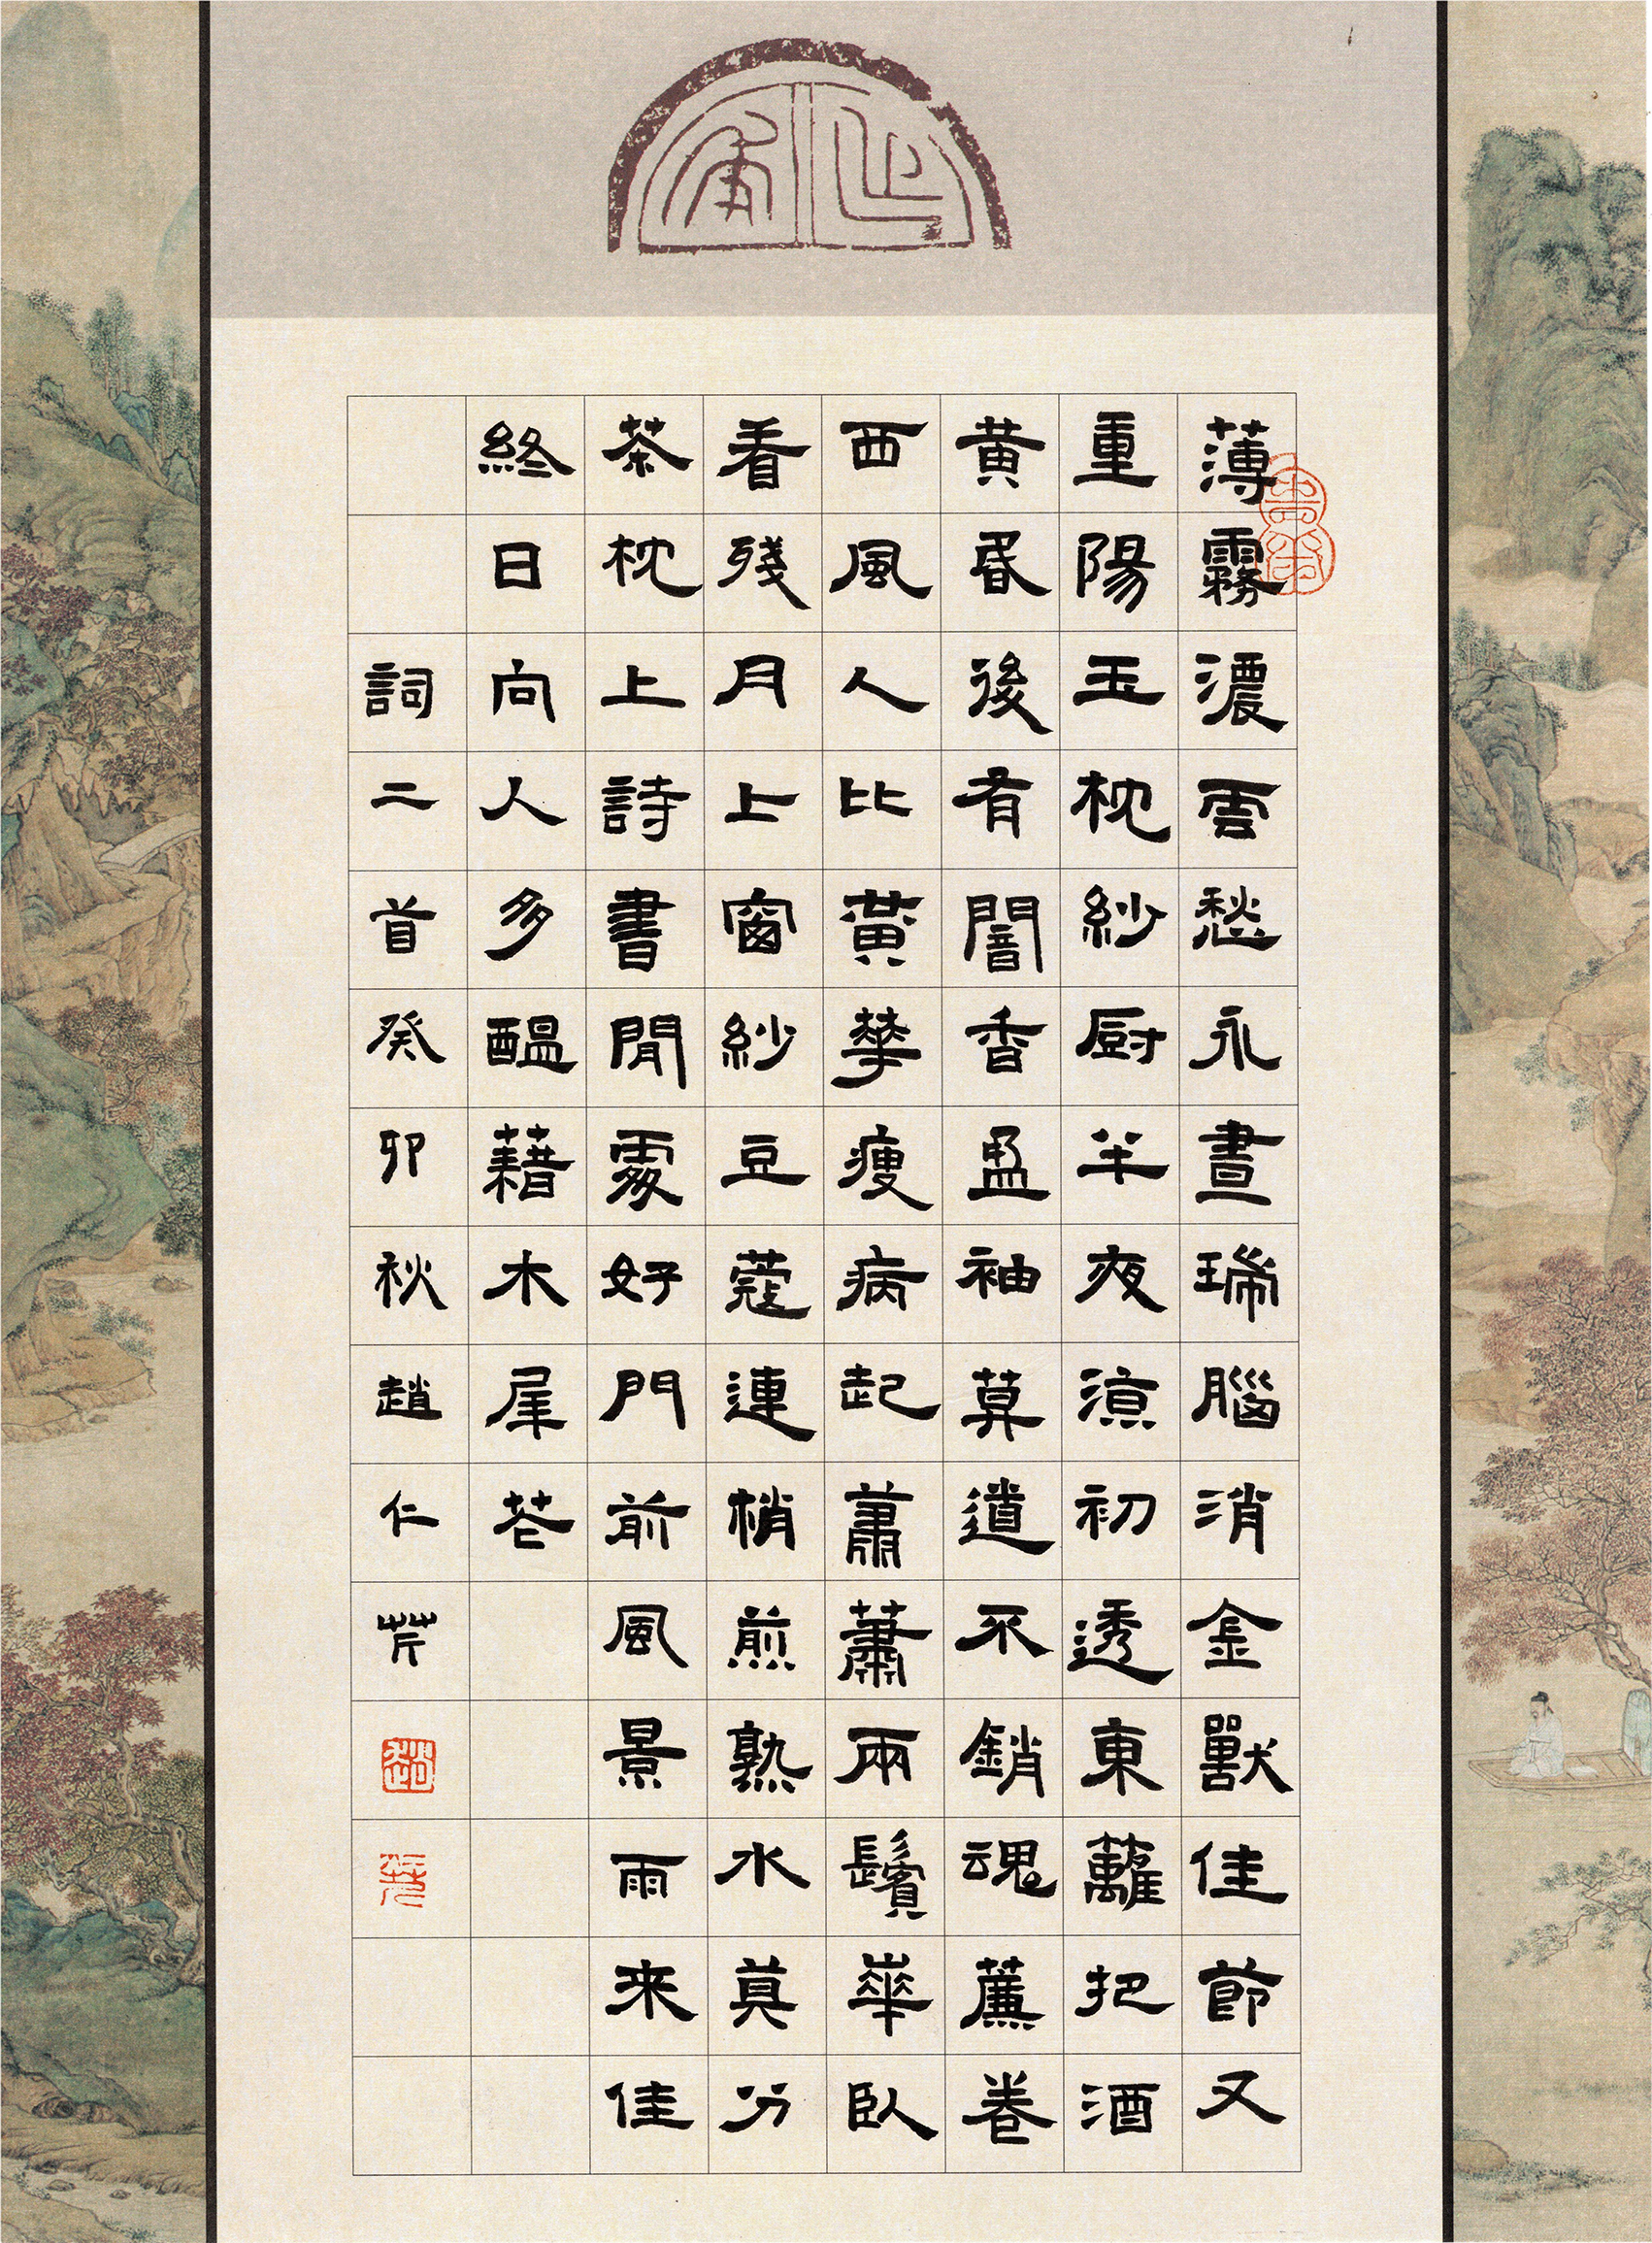 薄霧濃雲愁永晝瑞腦消金獸佳節又
重陽玉枕紗厨半夜涼初透東蘺把酒
黄昬後有闇香盈袖莫道不銷魂薕卷
西風人比黃華瘦病起蕭蕭兩鬢華臥
看殘月上窗紗豆蔻連梢煎熟水莫分
茶枕上詩書閒處好門前風景雨来佳
終日向人多醞藉木犀花
詞二首癸卯秋趙仁芹